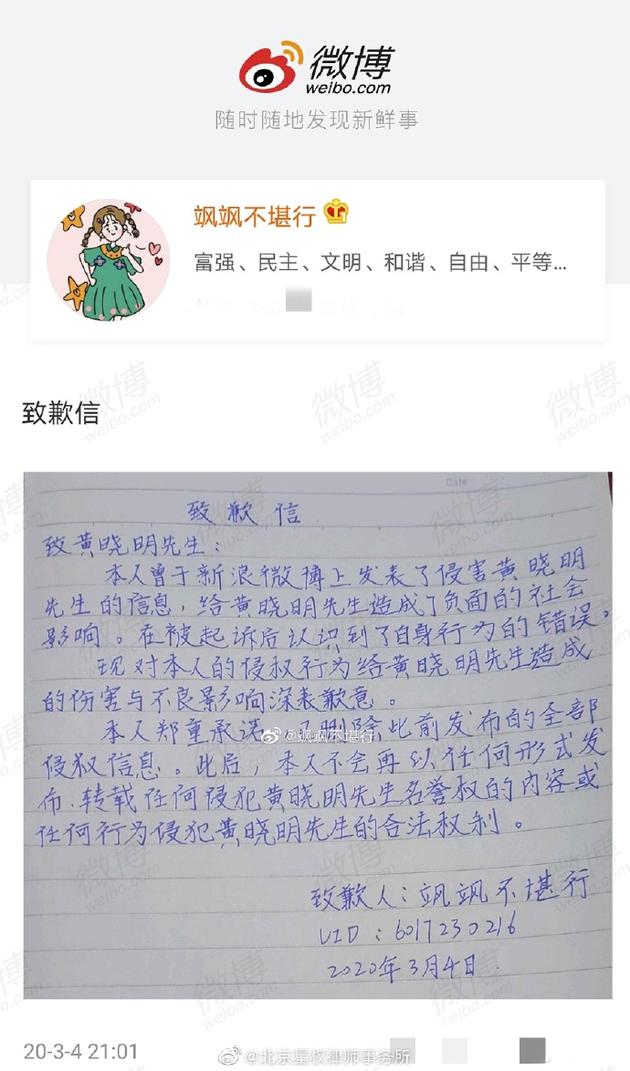 微博
weibo.com
随时随地发现新鲜事
飒飒不堪行
富强、民主、文明、和谐、自由、平等...
致歉信
Date
致歉信
致黄晓明先生：
本人曾于新浪微博上发表了侵害黄晓明
先生的信息，给黄晓明先生造成了负面的社会
影响。在被起诉后认识到了自身行为的错误。
现对本人的侵权行为给黄晓明先生造成
的伤害与不良影响深表歉意。
本人郑重承诺，已删除此前发布的全部
侵权信息。此后，本人不会再以任何形式发
布、转载任何侵犯黄晓明先生名誉权的内容或
任何行为侵犯黄晓明先生的合法权利。
@飒飒不堪行
致歉人：飒飒不堪行
UID：6017230216
2020年3月4日
20-3-4 21:01
@北京星权律师事务所